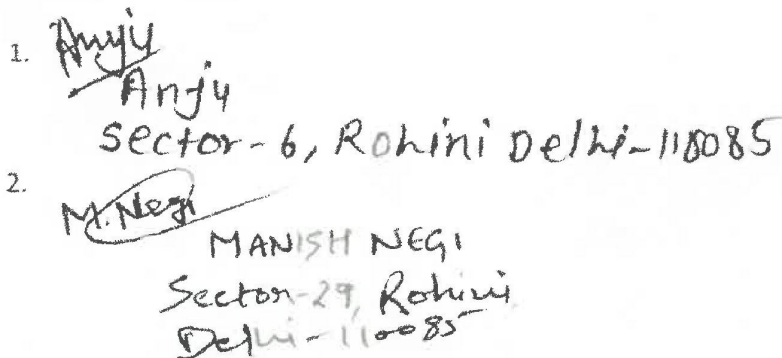 1. Anju
Anju
Sector-6, Rohini Delhi-110085
2. M. Negi
MANISH NEGI
Sector-29, Rohini
Delhi-110085